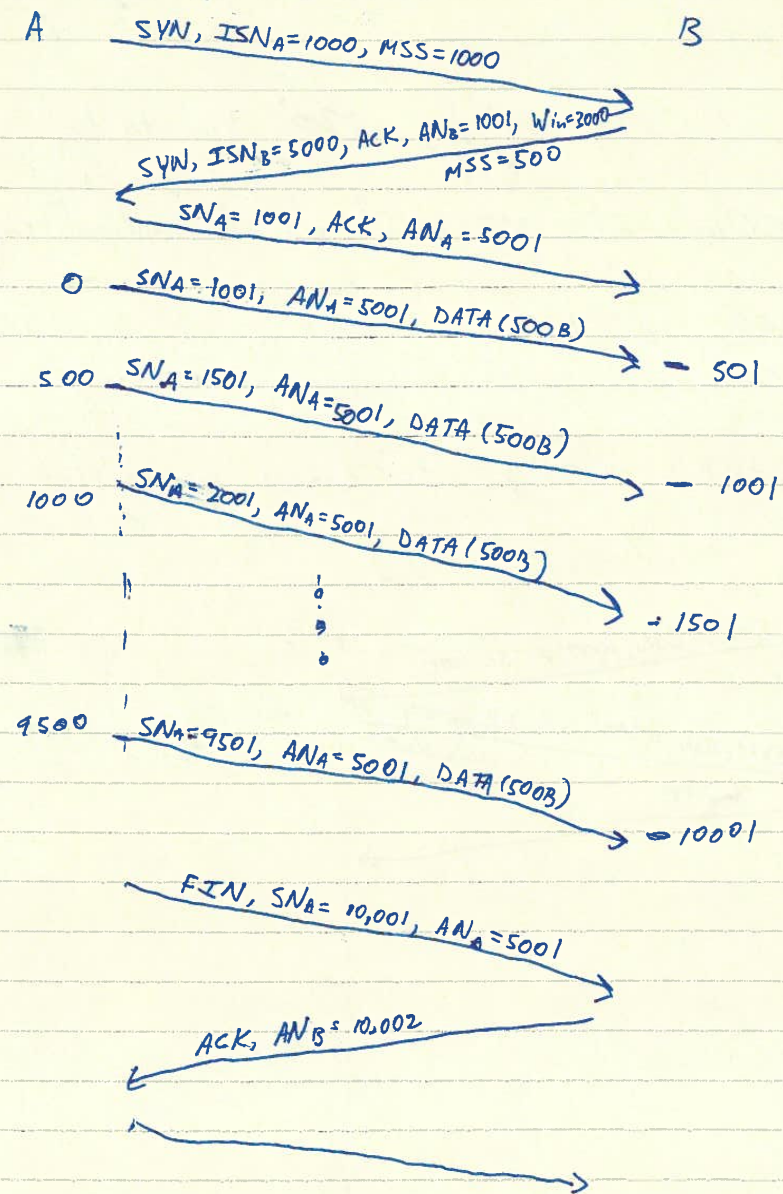 A SYN, ISNA=1000, MSS=1000 B
SYN, ISNB=5000, ACK, ANB=1001, Win=3000
MSS=500
SNA=1001, ACK, ANA=5001
0 SNA=1001, ANA=5001, DATA(500B) - 501
500 SNA=1501, ANA=5001, DATA (500B) - 1001
1000 SNA=2001, ANA=5001, DATA (500B) - 1501
9500 SNA=9501, ANA=5001, DATA (500B) - 10001
FIN, SNA=10,001, ANA=5001
ACK, ANB=10,002